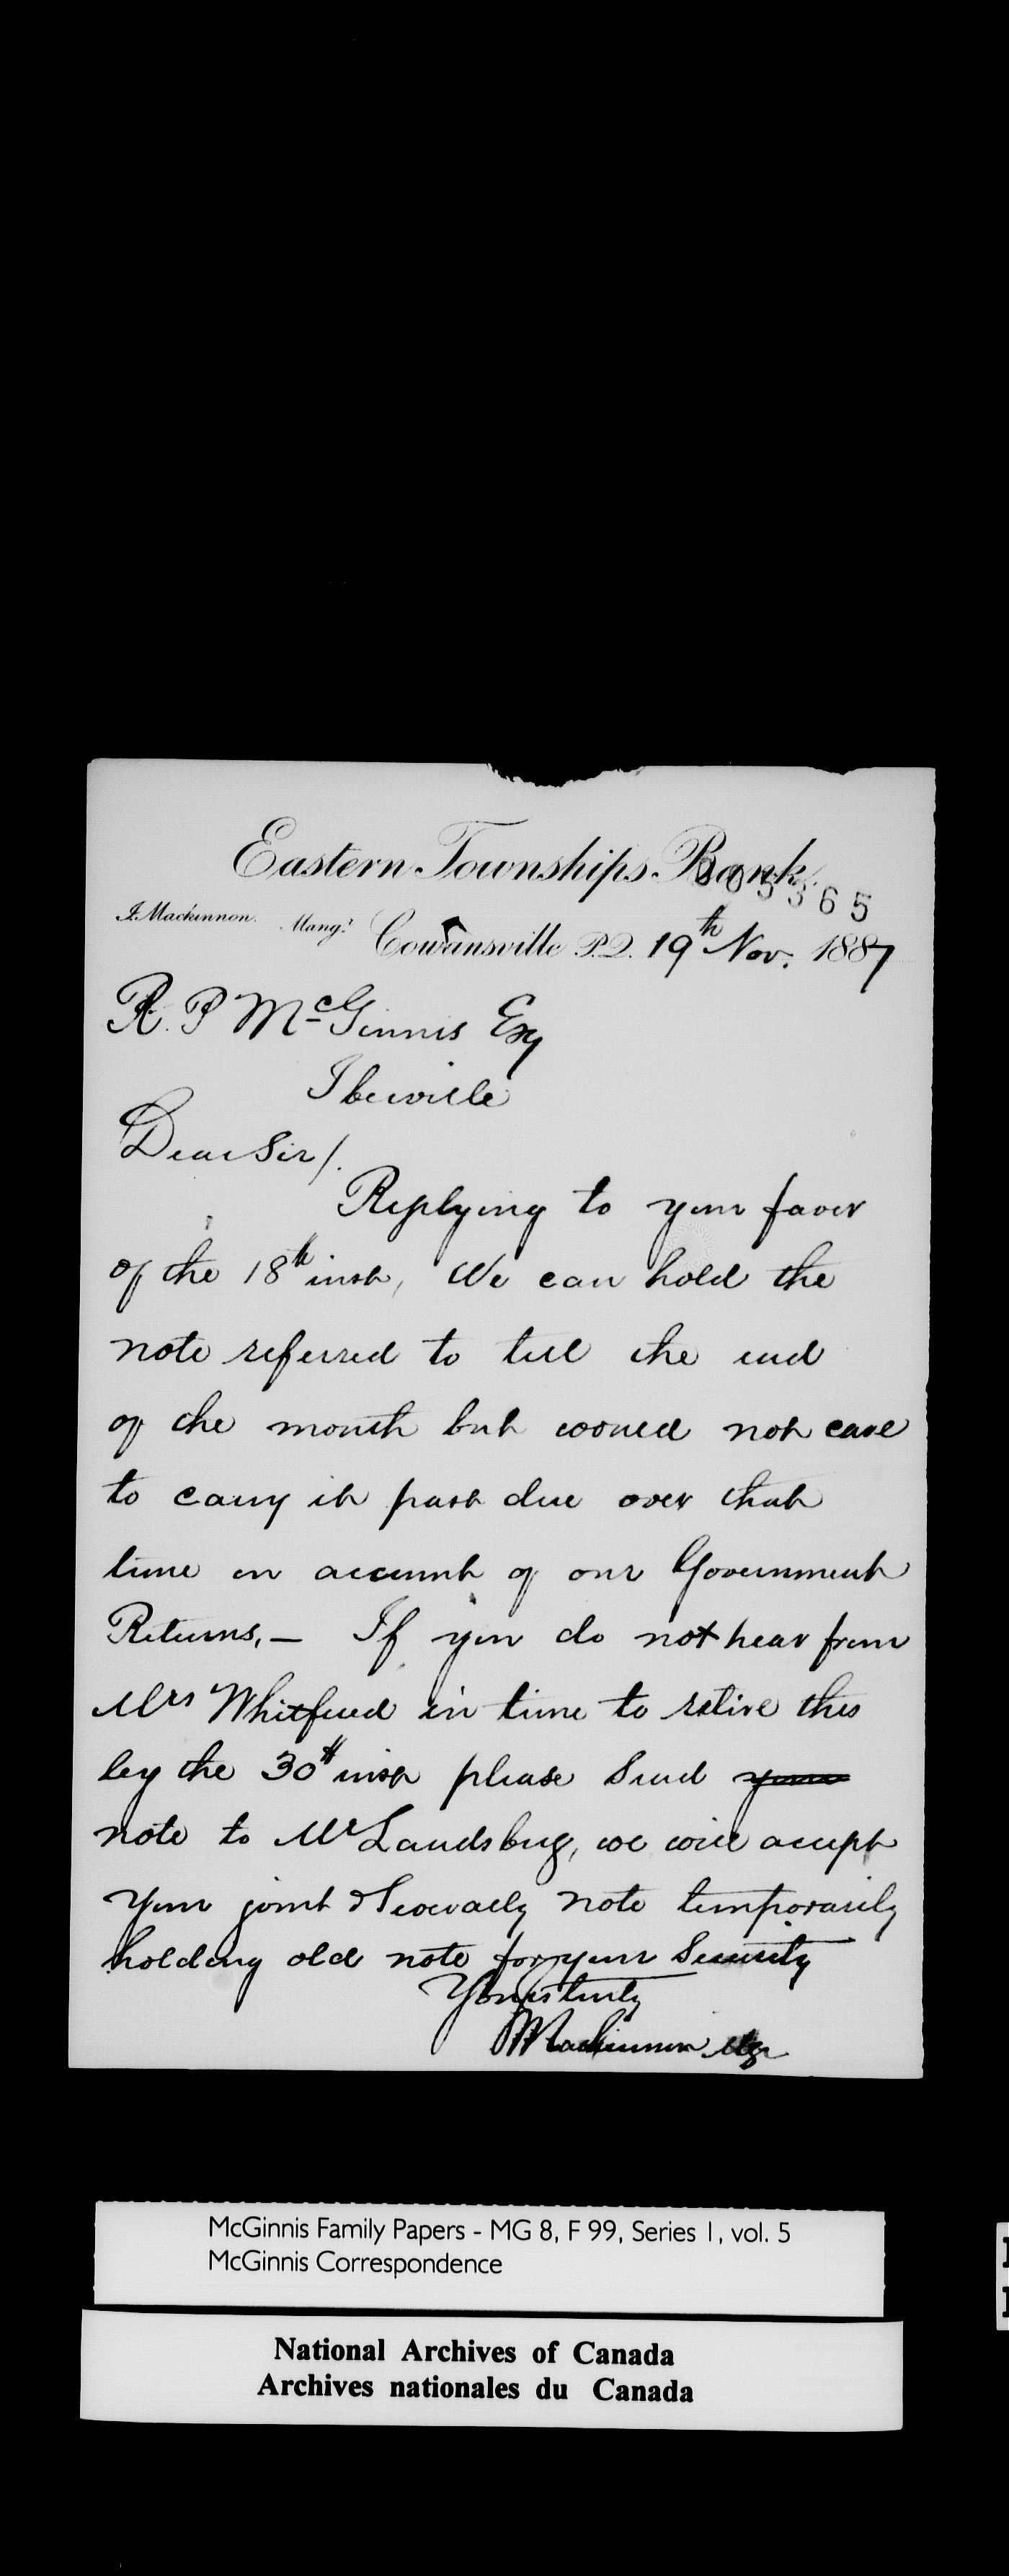 Eastern Townships Bank.
005365
J. Mackinnon. Mang.r Cowansville P.Q. 19th Nov. 1887
R. P McGinnis Esq
Iberville
Dear Sir/.
Replying to your favor
of the 18th inst, We can hold the
note referred to till the end
of the month but would not care
to carry it past due over that
time on account of our Government
Returns, — If you do not hear from
Mrs Whitfield in time to retire this
by the 30th inst please send your
note to Mr Landsberg, we will accept
your joint & severally note temporarily
holding old note for your security
Yours truly
Mackinnon Mgr
McGinnis Family Papers - MG 8, F 99, Series 1, vol. 5
McGinnis Correspondence
National Archives of Canada
Archives nationales du Canada